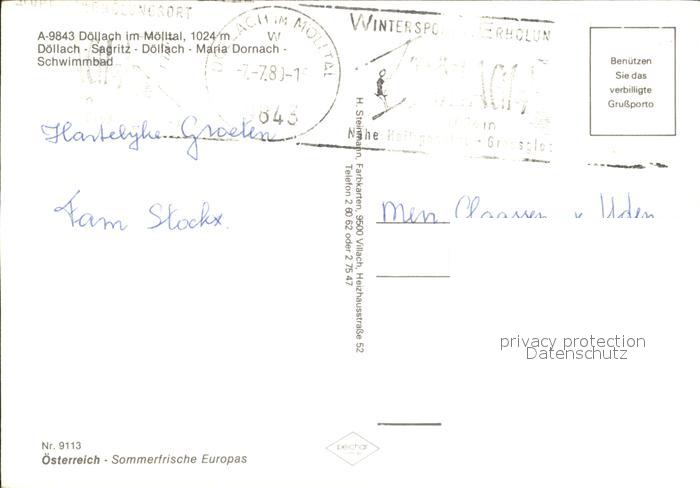 A-9843 Döllach im Mölltal, 1024 m
Döllach - Sagritz - Döllach - Maria Dornach -
Schwimmbad
DÖLLACH IM MÖLLTAL
W
-7.-7.80-1
9843
WINTERSPO ERHOLUN
Nähe Heiligen - Grossgloc
Benützen
Sie das
verbilligte
Grußporto
Hartelijke Groeten
Fam Stockx.
H. Steinmann, Farbkarten, 9500 Villach, Heizhausstraße 52
Telefon 2 80 62 oder 2 75 47
Claassen v Uden
privacy protection
Datenschutz
Nr. 9113
Österreich - Sommerfrische Europas